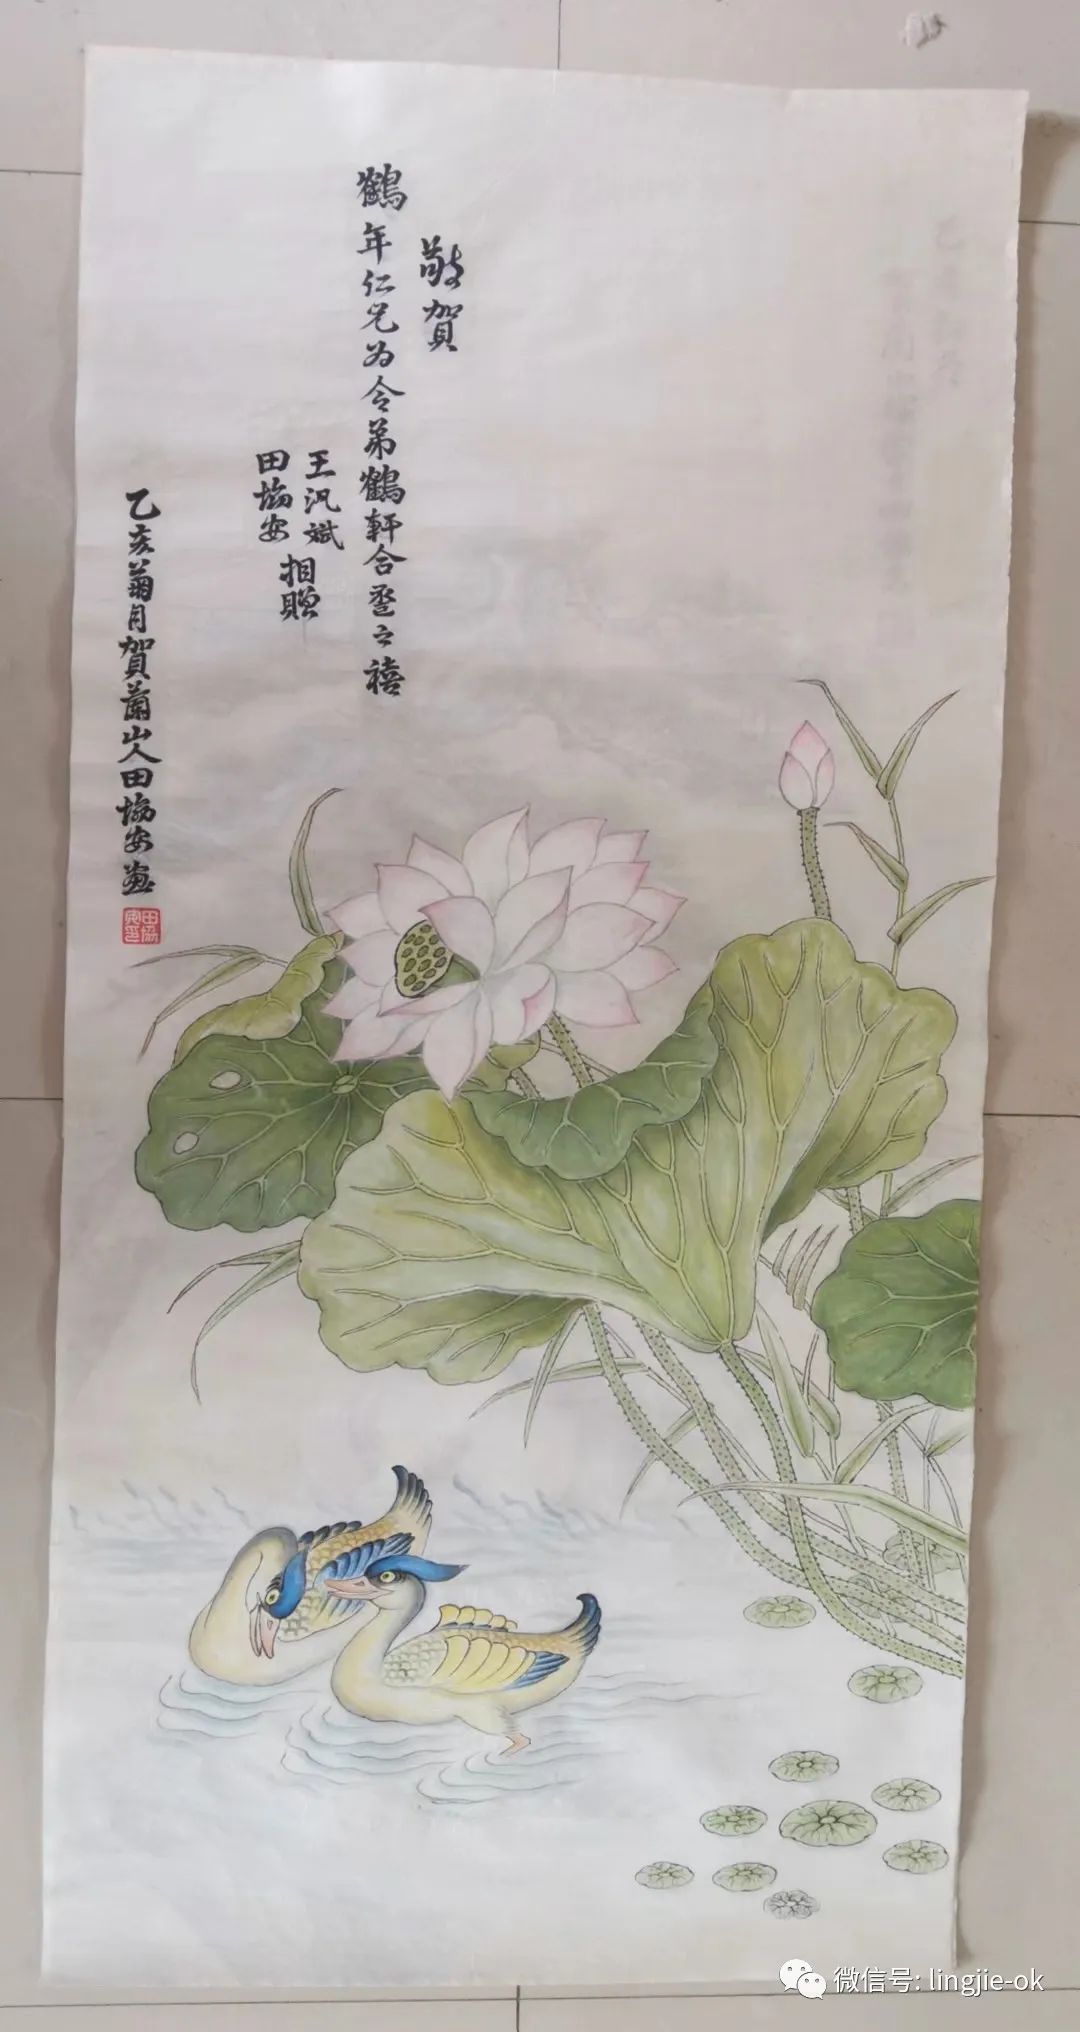 敬賀
鶴年仁兄为令弟鶴軒合卺之禧
王汎斌
田協安
相贈
乙亥菊月賀蘭山人田協安畫
田協安印
微信号: lingjie-ok